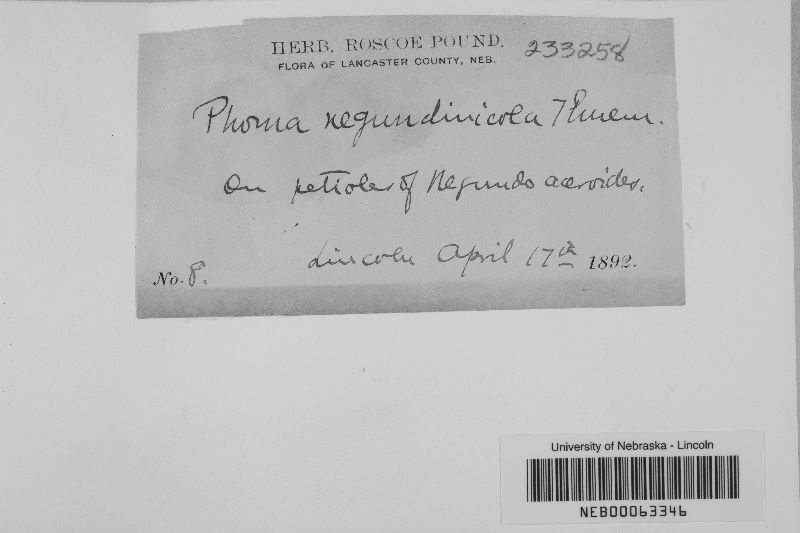 HERB. ROSCOE POUND. 233258
FLORA OF LANCASTER COUNTY, NEB.
Phoma negundinicola Thuem.
On petioles of Negundo aceroides.
Lincoln April 17th 1892.
No. 8.
University of Nebraska - Lincoln
NEB00063346